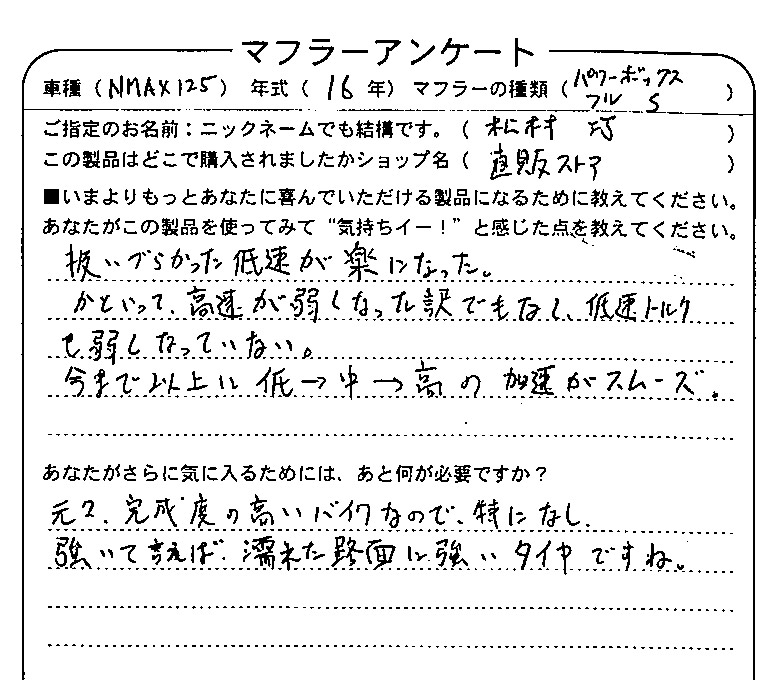 マフラーアンケート
車種（NMAX125） 年式（16年） マフラーの種類（パワーボックス
フルS）
ご指定のお名前：ニックネームでも結構です。（松村 巧）
この製品はどこで購入されましたかショップ名（直販ストア）
■いまよりもっとあなたに喜んでいただける製品になるために教えてください。
あなたがこの製品を使ってみて“気持ちイー！”と感じた点を教えてください。
扱いづらかった低速が楽になった。
かといって、高速が弱くなった訳でもなし、低速トルク
も弱くなっていない。
今まで以上に低→中→高の加速がスムーズ。
あなたがさらに気に入るためには、あと何が必要ですか？
元々、完成度の高いバイクなので、特になし、
強いて言えば、濡れた路面に強いタイヤですね。